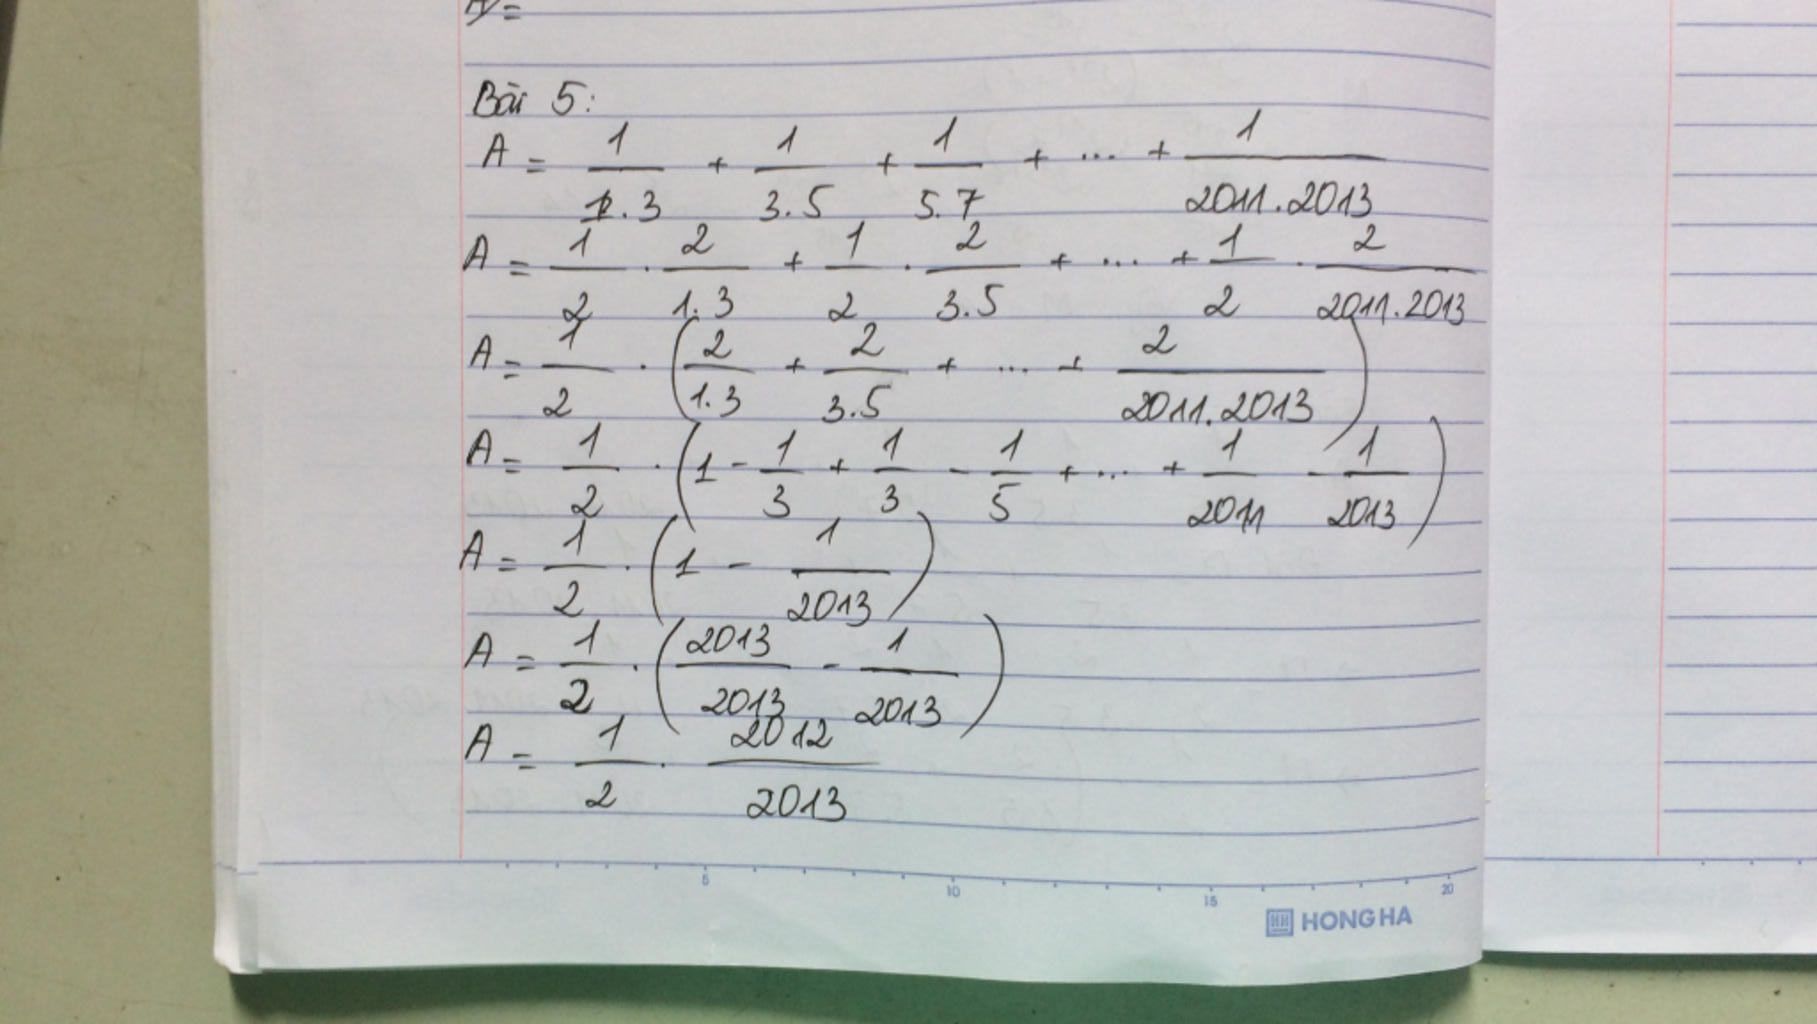 A =
Bài 5:
A = 1/1.3 + 1/3.5 + 1/5.7 + ... + 1/2011.2013
A = 1/2 . 2/1.3 + 1/2 . 2/3.5 + ... + 1/2 . 2/2011.2013
A = 1/2 . (2/1.3 + 2/3.5 + ... + 2/2011.2013)
A = 1/2 . (1 - 1/3 + 1/3 - 1/5 + ... + 1/2011 - 1/2013)
A = 1/2 . (1 - 1/2013)
A = 1/2 . (2013/2013 - 1/2013)
A = 1/2 . 2012/2013
5 10 15 20
HONG HA